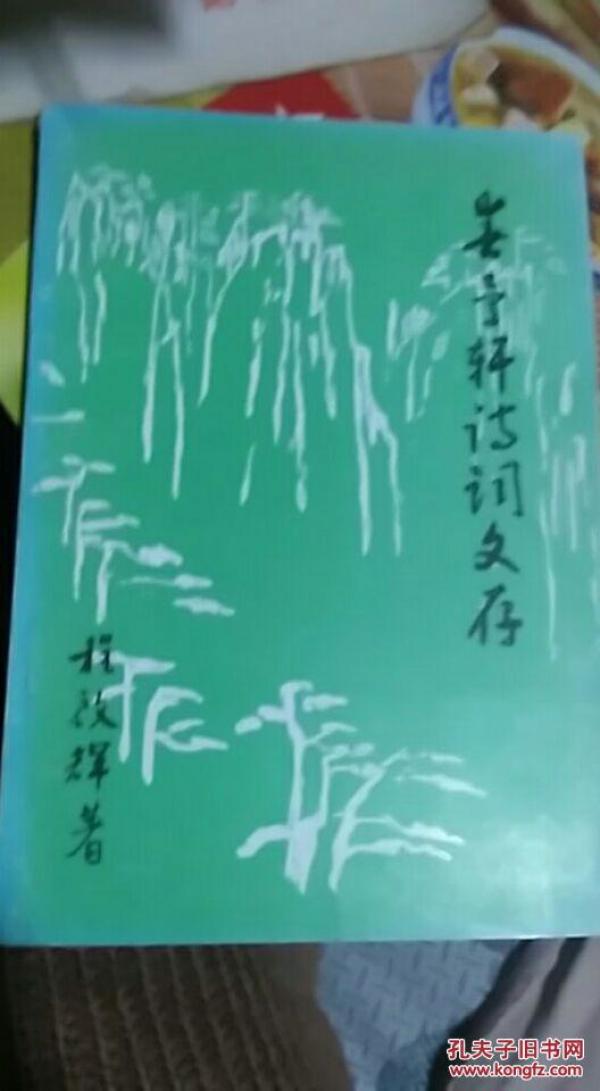 轩诗词文存
程辉著
孔夫子旧书网
www.kongfz.com